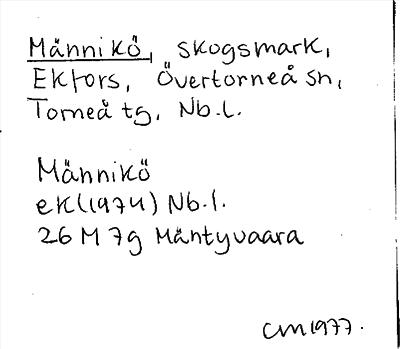 Männikö, skogsmark,
Ekfors, Övertorneå sn,
Torneå tg, Nb.l.
Männikö
ek (1974) Nb.l.
26 M 7g Mäntyvaara
CM 1977.